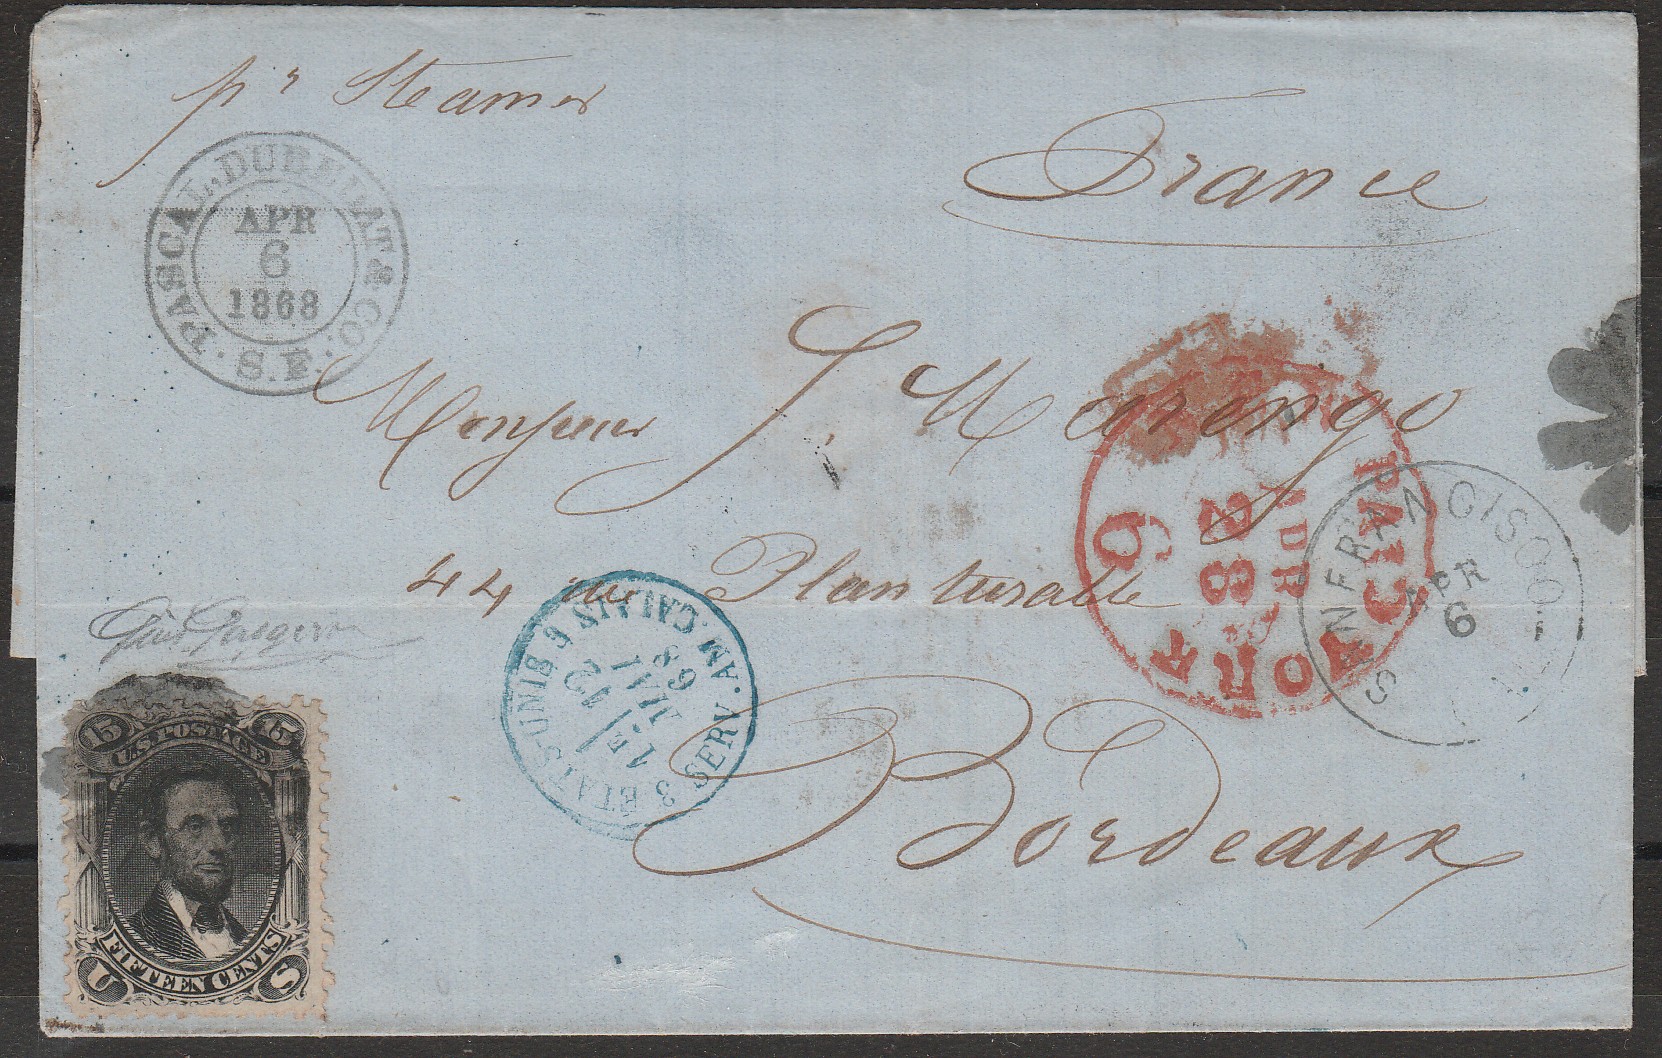 pr Steamer
France
PASCAL, DUBEDAT & CO. S.F.
APR
6
1868
Monsieur J. Marengo
44 rue Planturable
Bordeaux
SAN FRANCISCO
APR
6
YORK PAID
APR
28
6
3 ETATS-UNIS SERV. AM. CALAIS
MAI
68
15 U.S. POSTAGE 15
FIFTEEN CENTS
U S